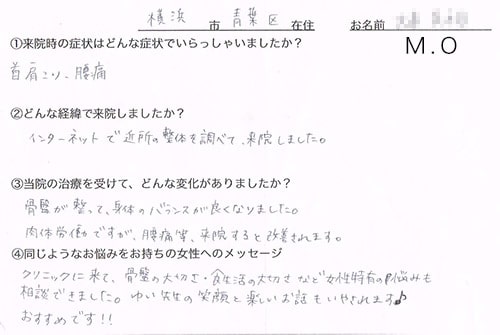 横浜 市 青葉 区 在住 お名前
M.O
①来院時の症状はどんな症状でいらっしゃいましたか?
首肩こり、腰痛
②どんな経緯で来院しましたか?
インターネットで近所の整体を調べて、来院しました。
③当院の治療を受けて、どんな変化がありましたか?
骨盤が整って、身体のバランスが良くなりました。
肉体労働ですが、腰痛等、来院すると改善されます。
④同じようなお悩みをお持ちの女性へのメッセージ
クリニックに来て、骨盤の大切さ・食生活の大切さなど女性特有の悩みも
相談できました。ゆい先生の笑顔と楽しいお話もいやされます♪
おすすめです!!